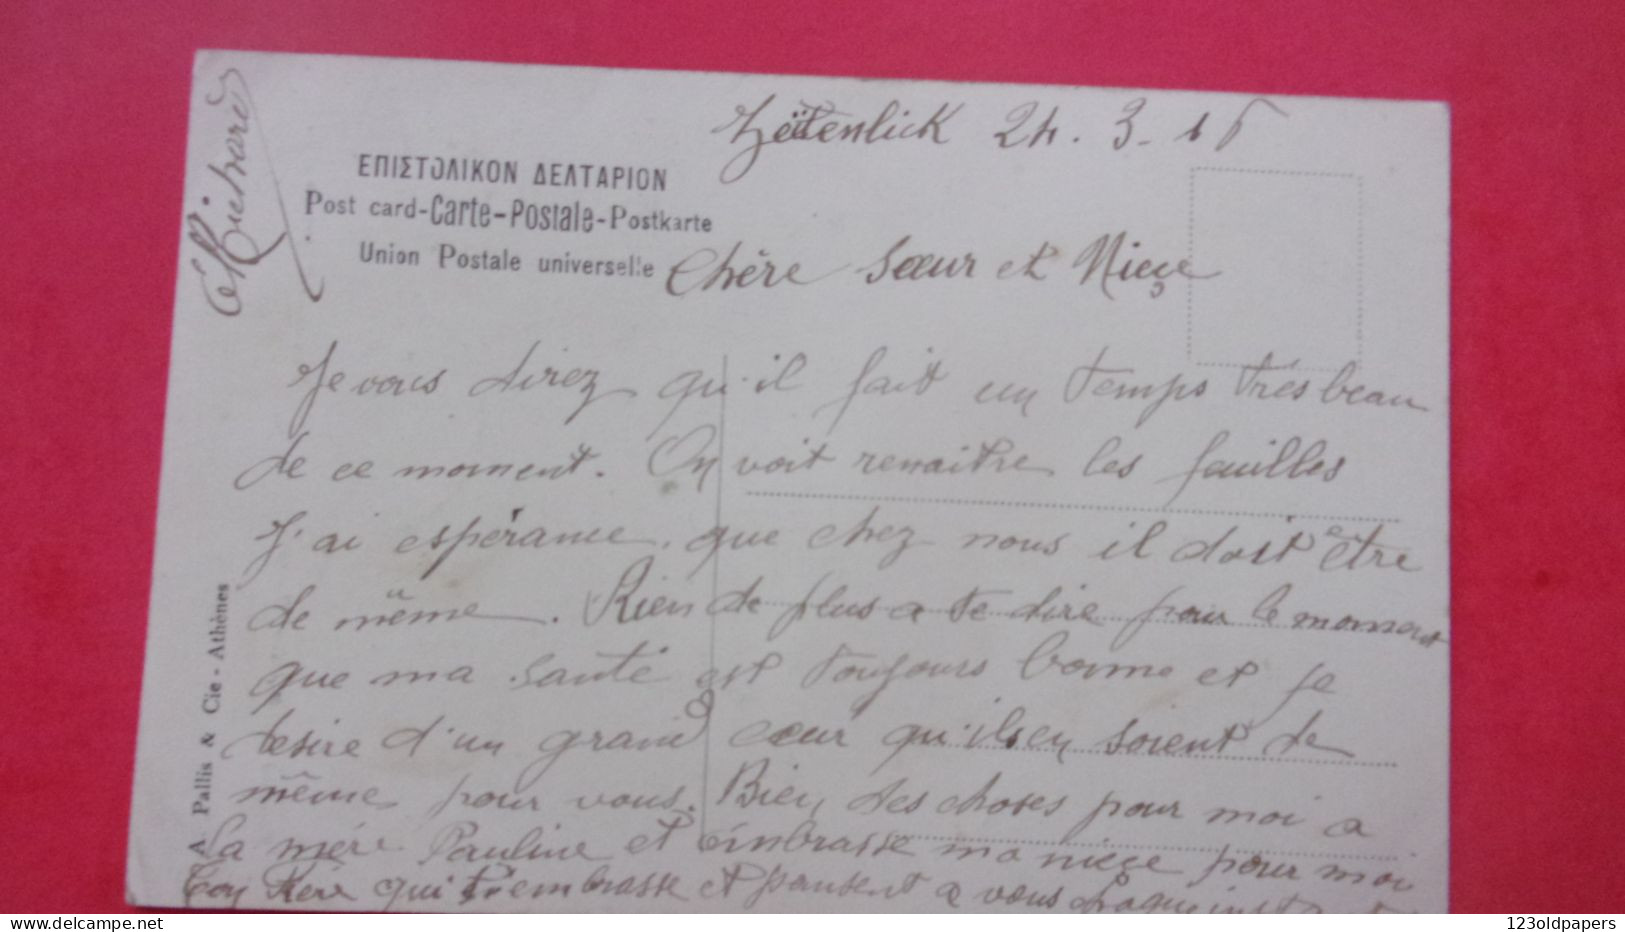 Zeïtenlick 24. 3. 16
ΕΠΙΣΤΟΛΙΚΟΝ ΔΕΛΤΑΡΙΟΝ
Post card-Carte-Postale-Postkarte
Union Postale universelle
Chère Sœur et Nieçe
Je vous direz qu'il fait un temps très beau
de ce moment. On voit renaitre les feuilles
J'ai espérance que chez nous il doit être
de même. Rien de plus a te dire pour le moment
que ma santé est toujours bonne et je
desire d'un grand cœur qu'ils en soient de
même pour vous. Bien des choses pour moi a
la mère Pauline et embrasse ma nieçe pour moi
Ton frère qui t'embrasse et pensent a vous chaque
Richard
A. Pallis & Cie - Athènes
123oldpapers